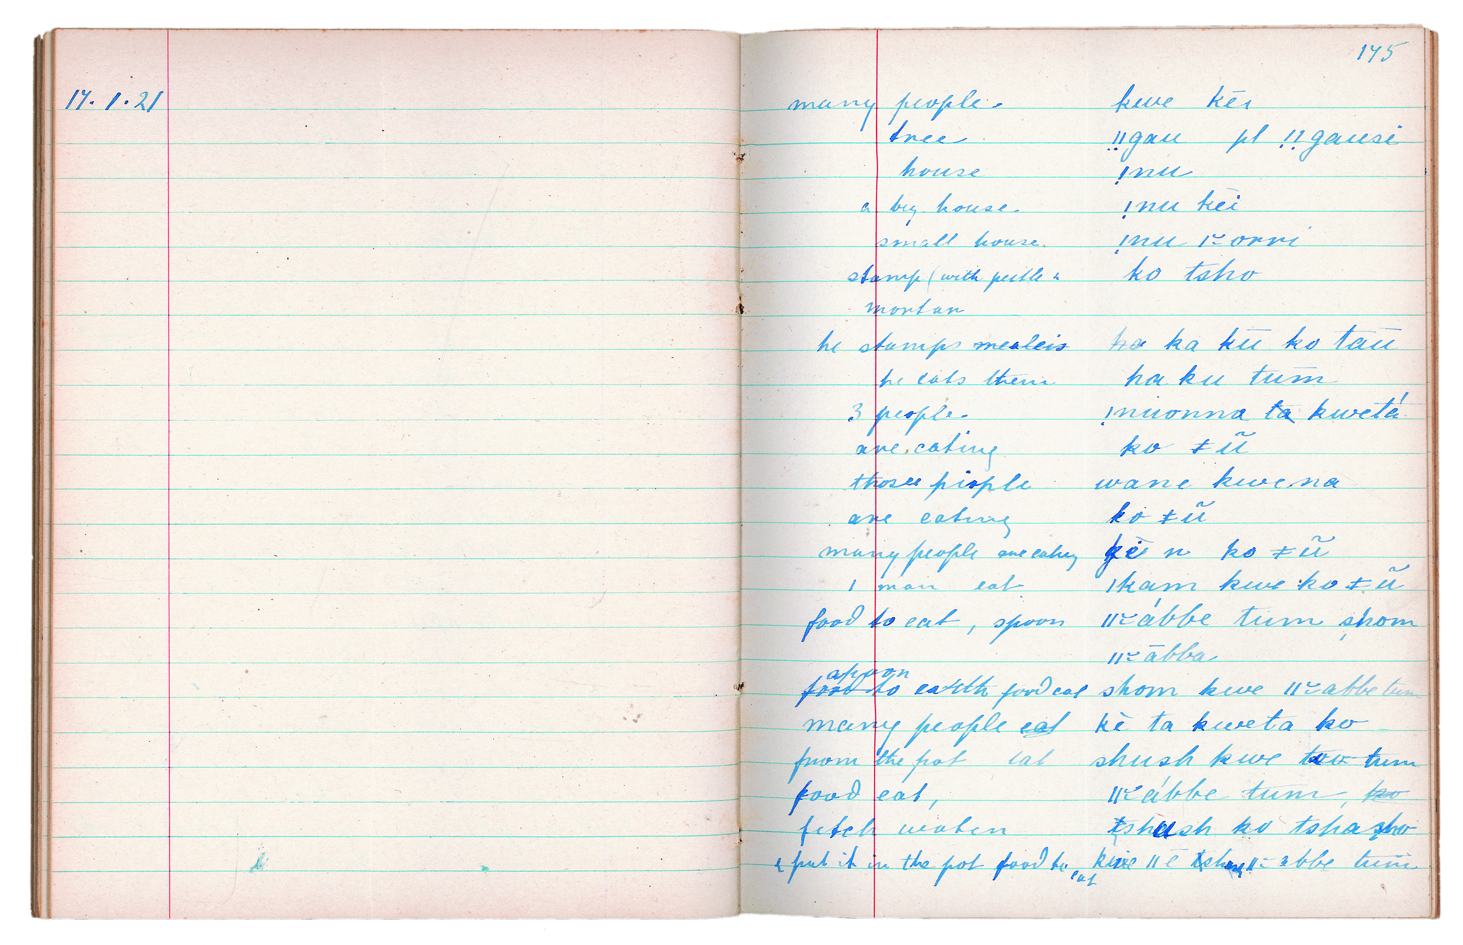 17. 1. 21
175
many people. kwe kēi
tree !!gau pl !!gausi
house !nu
a big house. !nu kēi
small house. !nu
stamp (with pestle & ko tsho
mortar
he stamps mealeis ha ka kū ko taū
he eats them ha ku tum
3 people. !nuonna ta kwetá
are eating ko ǂ ũ
those people wane kwe na
are eating ko ǂ ũ
many people are eating kēi n ko ǂ ũ
1 man eat. kam kwe ko ǂ ũ
food to eat, spoon ábbe tum shom
ābba
spoon
food to earth food eat shom kwe abbe tum
many people eat kē ta kweta ko
from the pot eat shush kwe tum
food eat, ábbe tum, ko
fetch water tshush ko tsha sho
& put it in the pot food to eat kwe abbe tum